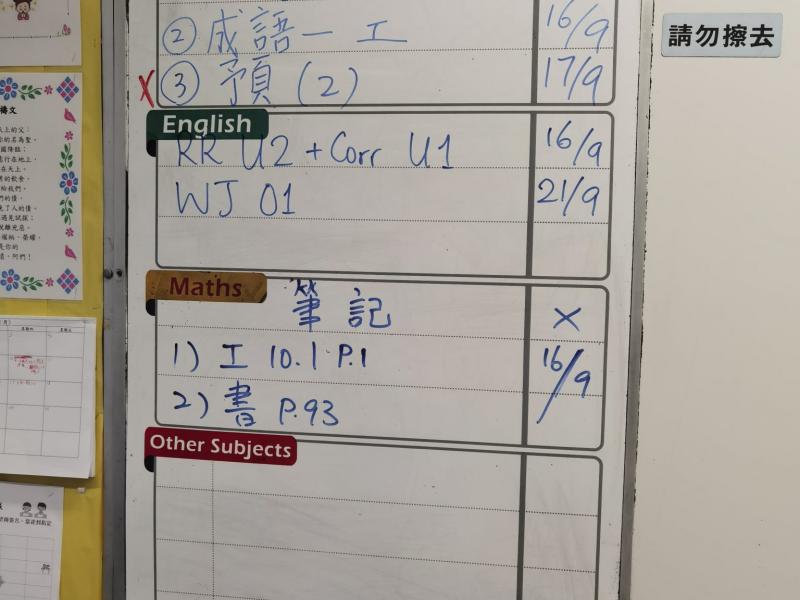 ② 成語一 工 16/9
X ③ 預 (2) 17/9
English
RR U2 + Corr U1 16/9
WJ 01 21/9
Maths
筆記 X
1) 工 10.1 P.1 16/9
2) 書 P.93
Other Subjects
請勿擦去
禱文
天上的父：
行在地上，
在天上。
阿們！